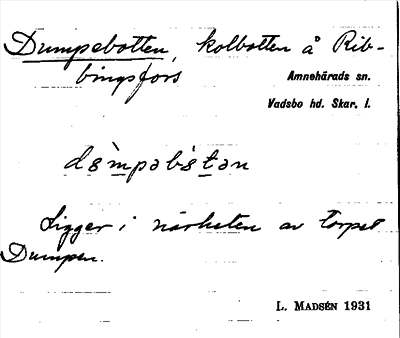 Dumpebotten, kolbotten å Rib-
bingsfors
Amnehärads sn.
Vadsbo hd. Skar. l.
Ligger i närheten av torpet
Dumpen.
L. MADSÉN 1931